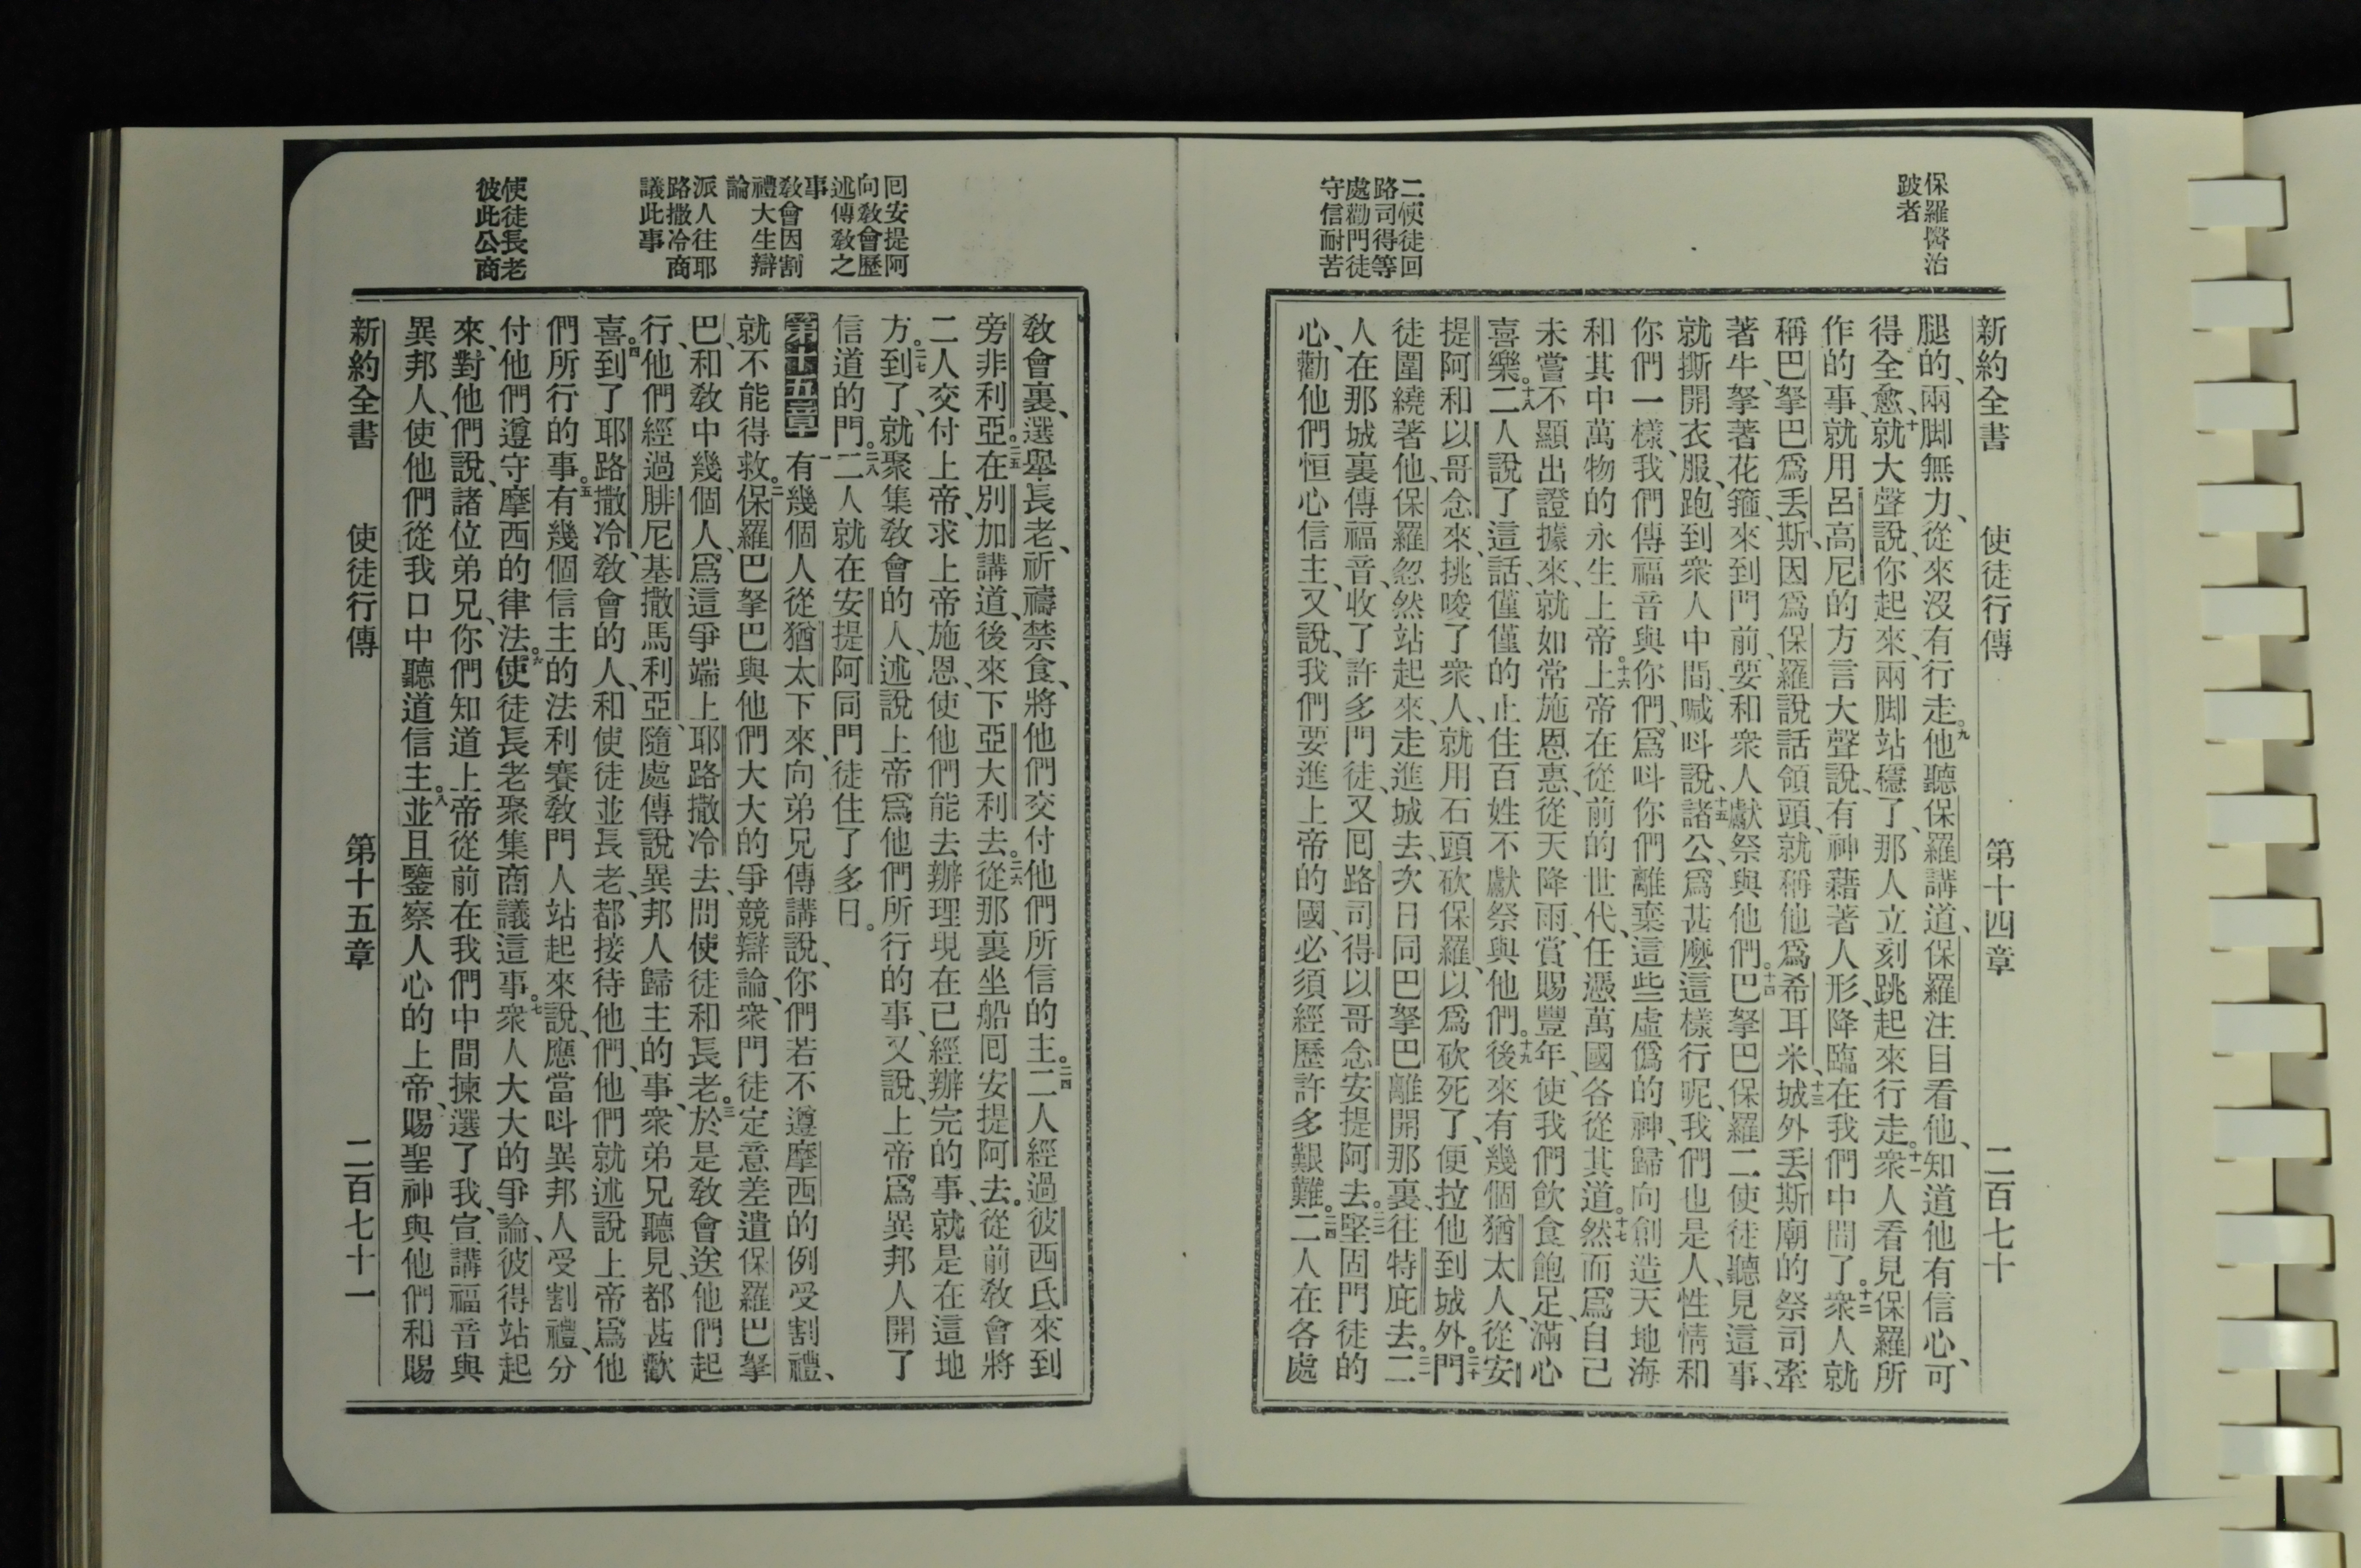 保羅醫治
跛者
二使徒回
路司得等
處勸門徒
守信耐苦
新約全書　使徒行傳　第十四章　二百七十
腿的、兩脚無力、從來沒有行走。九他聽保羅講道、保羅注目看他、知道他有信心、可
得全愈、十就大聲說、你起來、兩脚站穩了、那人立刻跳起來行走。十一衆人看見保羅所
作的事、就用呂高尼的方言大聲說、有神藉著人形、降臨在我們中間了。十二衆人就
稱巴拏巴爲丢斯、因爲保羅說話領頭、就稱他爲希耳米、十三城外丢斯廟的祭司牽
著牛、拏著花箍、來到門前、要和衆人獻祭與他們。十四巴拏巴保羅二使徒聽見這事、
就撕開衣服、跑到衆人中間、喊呌說、十五諸公、爲甚麽這樣行呢、我們也是人、性情和
你們一樣、我們傳福音與你們、爲呌你們離棄這些虛僞的神、歸向創造天地海
和其中萬物的永生上帝。十六上帝在從前的世代、任憑萬國各從其道。十七然而爲自己
未嘗不顯出證據來、就如常施恩惠、從天降雨、賞賜豐年、使我們飮食飽足、滿心
喜樂。十八二人說了這話、僅僅的止住百姓不獻祭與他們。十九後來有幾個猶太人、從安
提阿和以哥念來、挑唆了衆人、就用石頭砍保羅、以爲砍死了、便拉他到城外。二十門
徒圍繞著他、保羅忽然站起來、走進城去、次日同巴拏巴離開那裏、往特庇去。二一二
人在那城裏傳福音、收了許多門徒、又囘路司得以哥念安提阿去。二二堅固門徒的
心、勸他們恒心信主、又說、我們要進上帝的國、必須經歷許多艱難。二四二人在各處
囘安提阿
向敎會歷
述傳敎之
事
敎會因割
禮大生辯
論
派人往耶
路撒冷商
議此事
使徒長老
彼此公商
敎會裏、選舉長老、祈禱禁食、將他們交付他們所信的主。二四二人經過彼西氏來到
旁非利亞。二五在別加講道、後來下亞大利去。二六從那裏坐船囘安提阿去。從前敎會將
二人交付上帝、求上帝施恩、使他們能去辦理現在已經辦完的事、就是在這地
方。二七到了、就聚集敎會的人、述說上帝爲他們所行的事、又說、上帝爲異邦人開了
信道的門。二八二人就在安提阿同門徒住了多日。
第十五章　一有幾個人從猶太下來、向弟兄傳講說、你們若不遵摩西的例受割禮、
就不能得救。二保羅巴拏巴與他們大大的爭競辯論、衆門徒定意差遣保羅巴拏
巴、和敎中幾個人、爲這爭端上耶路撒冷去問使徒和長老。三於是敎會送他們起
行、他們經過腓尼基撒馬利亞、隨處傳說異邦人歸主的事、衆弟兄聽見、都甚歡
喜。四到了耶路撒冷、敎會的人、和使徒並長老、都接待他們、他們就述說上帝爲他
們所行的事。五有幾個信主的法利賽敎門人站起來說、應當呌異邦人受割禮、分
付他們遵守摩西的律法。六使徒長老聚集商議這事。七衆人大大的爭論、彼得站起
來、對他們說、諸位弟兄、你們知道上帝從前在我們中間揀選了我、宣講福音與
異邦人、使他們從我口中聽道信主。八並且鑒察人心的上帝、賜聖神與他們和賜
新約全書　使徒行傳　第十五章　二百七十一